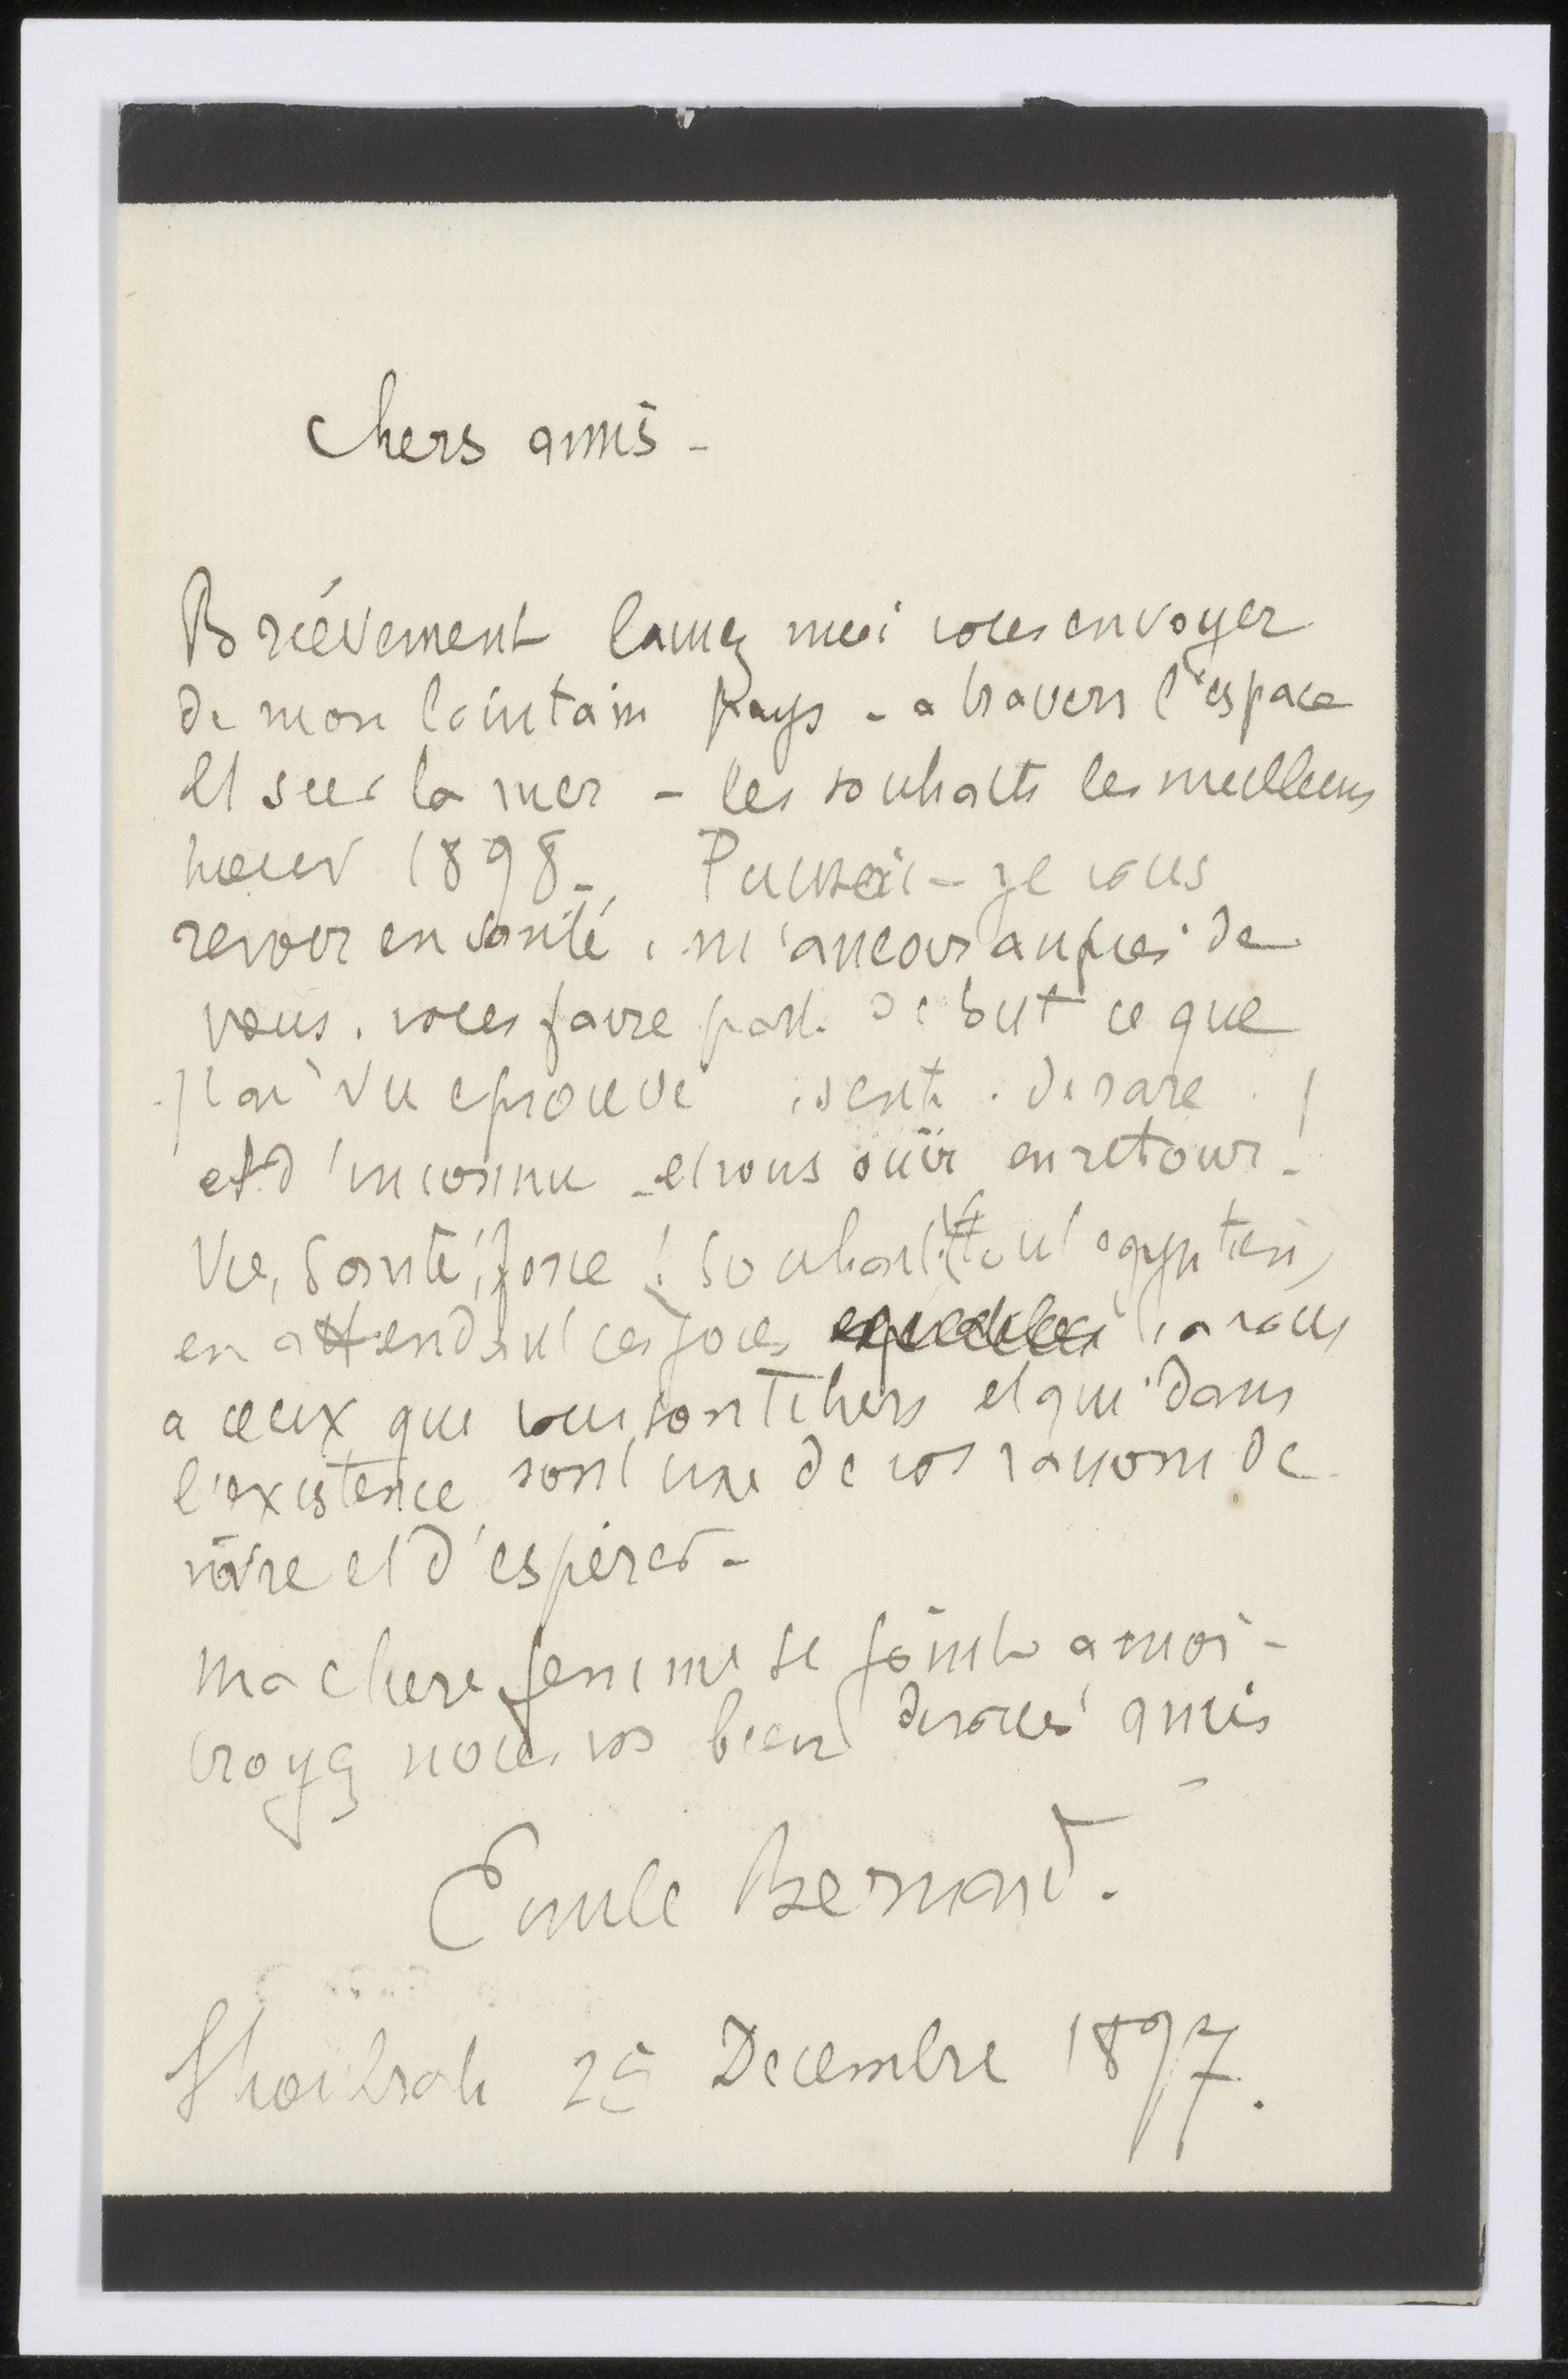 Chers amis -
Brièvement laissez moi vous envoyer
de mon lointain pays - a travers l'espace
et sur la mer - les souhaits les meilleurs
pour 1898 - Puissai-je vous
revoir en santé, m'asseoir auprès de
vous, vous faire part de tout ce que
j'ai vu eprouvé, senti, de rare
et d'inconnu - et vous ouïr en retour - !
Vie, Santé, force ! Souhait (tout egyptien)
en attendant ces joies a vous
a ceux qui vous sont chers et qui dans
l'existence sont une de vos raisons de
vivre et d'espérer -
Ma chere femme se joint a moi -
Croyez nous vos bien dévoués amis
Emile Bernard.
Shoubrah 25 Decembre 1897.